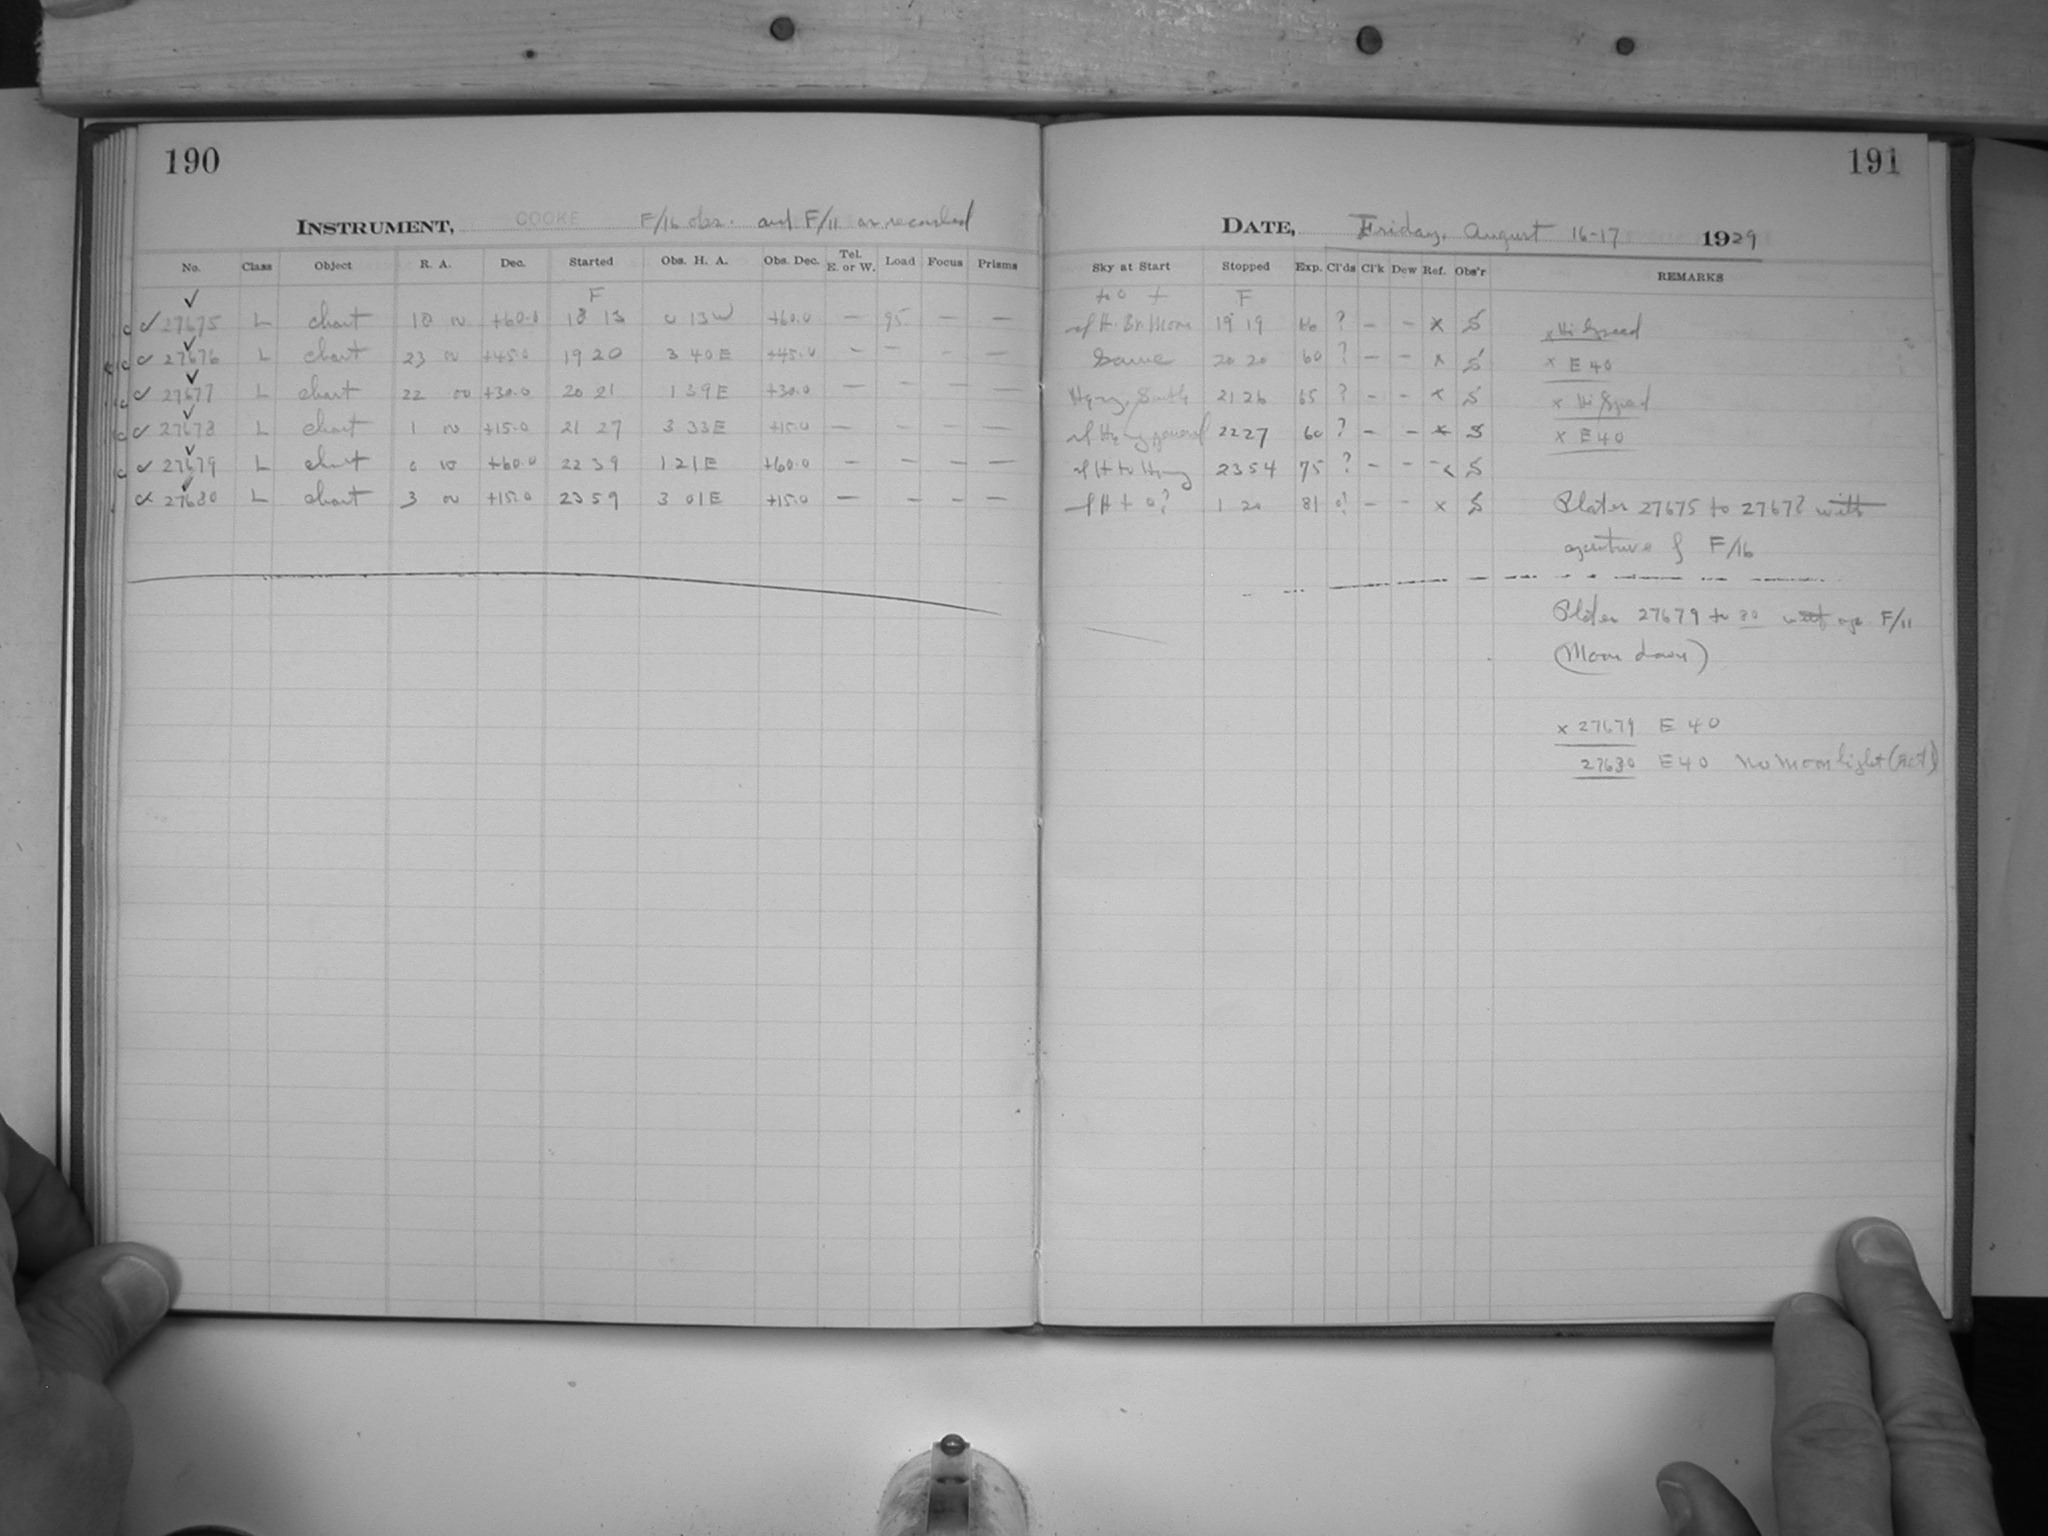 190
INSTRUMENT, COOKE F/16 obs. and F/11 as recorded
No. Class Object R. A. Dec. Started Obs. H. A. Obs. Dec. Tel. E. or W. Load Focus Prisms
F
27675 L chart 18 00 +60.0 18 13 0 13 W +60.0 — 95 — —
27676 L chart 23 00 +45.0 19 20 3 40 E +45.0 — — — —
27677 L chart 22 00 +30.0 20 21 1 39 E +30.0 — — — —
27678 L chart 1 00 +15.0 21 27 3 33 E +15.0 — — — —
27679 L chart 0 10 +60.0 22 39 1 21 E +60.0 — — — —
27680 L chart 3 00 +15.0 23 59 3 01 E +15.0 — — — —
191
DATE, Friday, August 16-17 1929
Sky at Start Stopped Exp. Cl'ds Cl'k Dew Ref. Obs'r REMARKS
F
Br. Moon 19 19 66 ? — — x S x Hi Speed
Same 20 20 60 ? — — x S x E 40
Hazy, South 21 26 65 ? — — x S x Hi Speed
general 22 27 60 ? — — x S x E 40
H to Hazy 23 54 75 ? — — x S
1 20 81 — — x S
Plates 27675 to 27678 with
aperture of F/16
Plates 27679 to 80 with ap F/11
(Moon down)
x 27679 E 40
27680 E 40 No moonlight